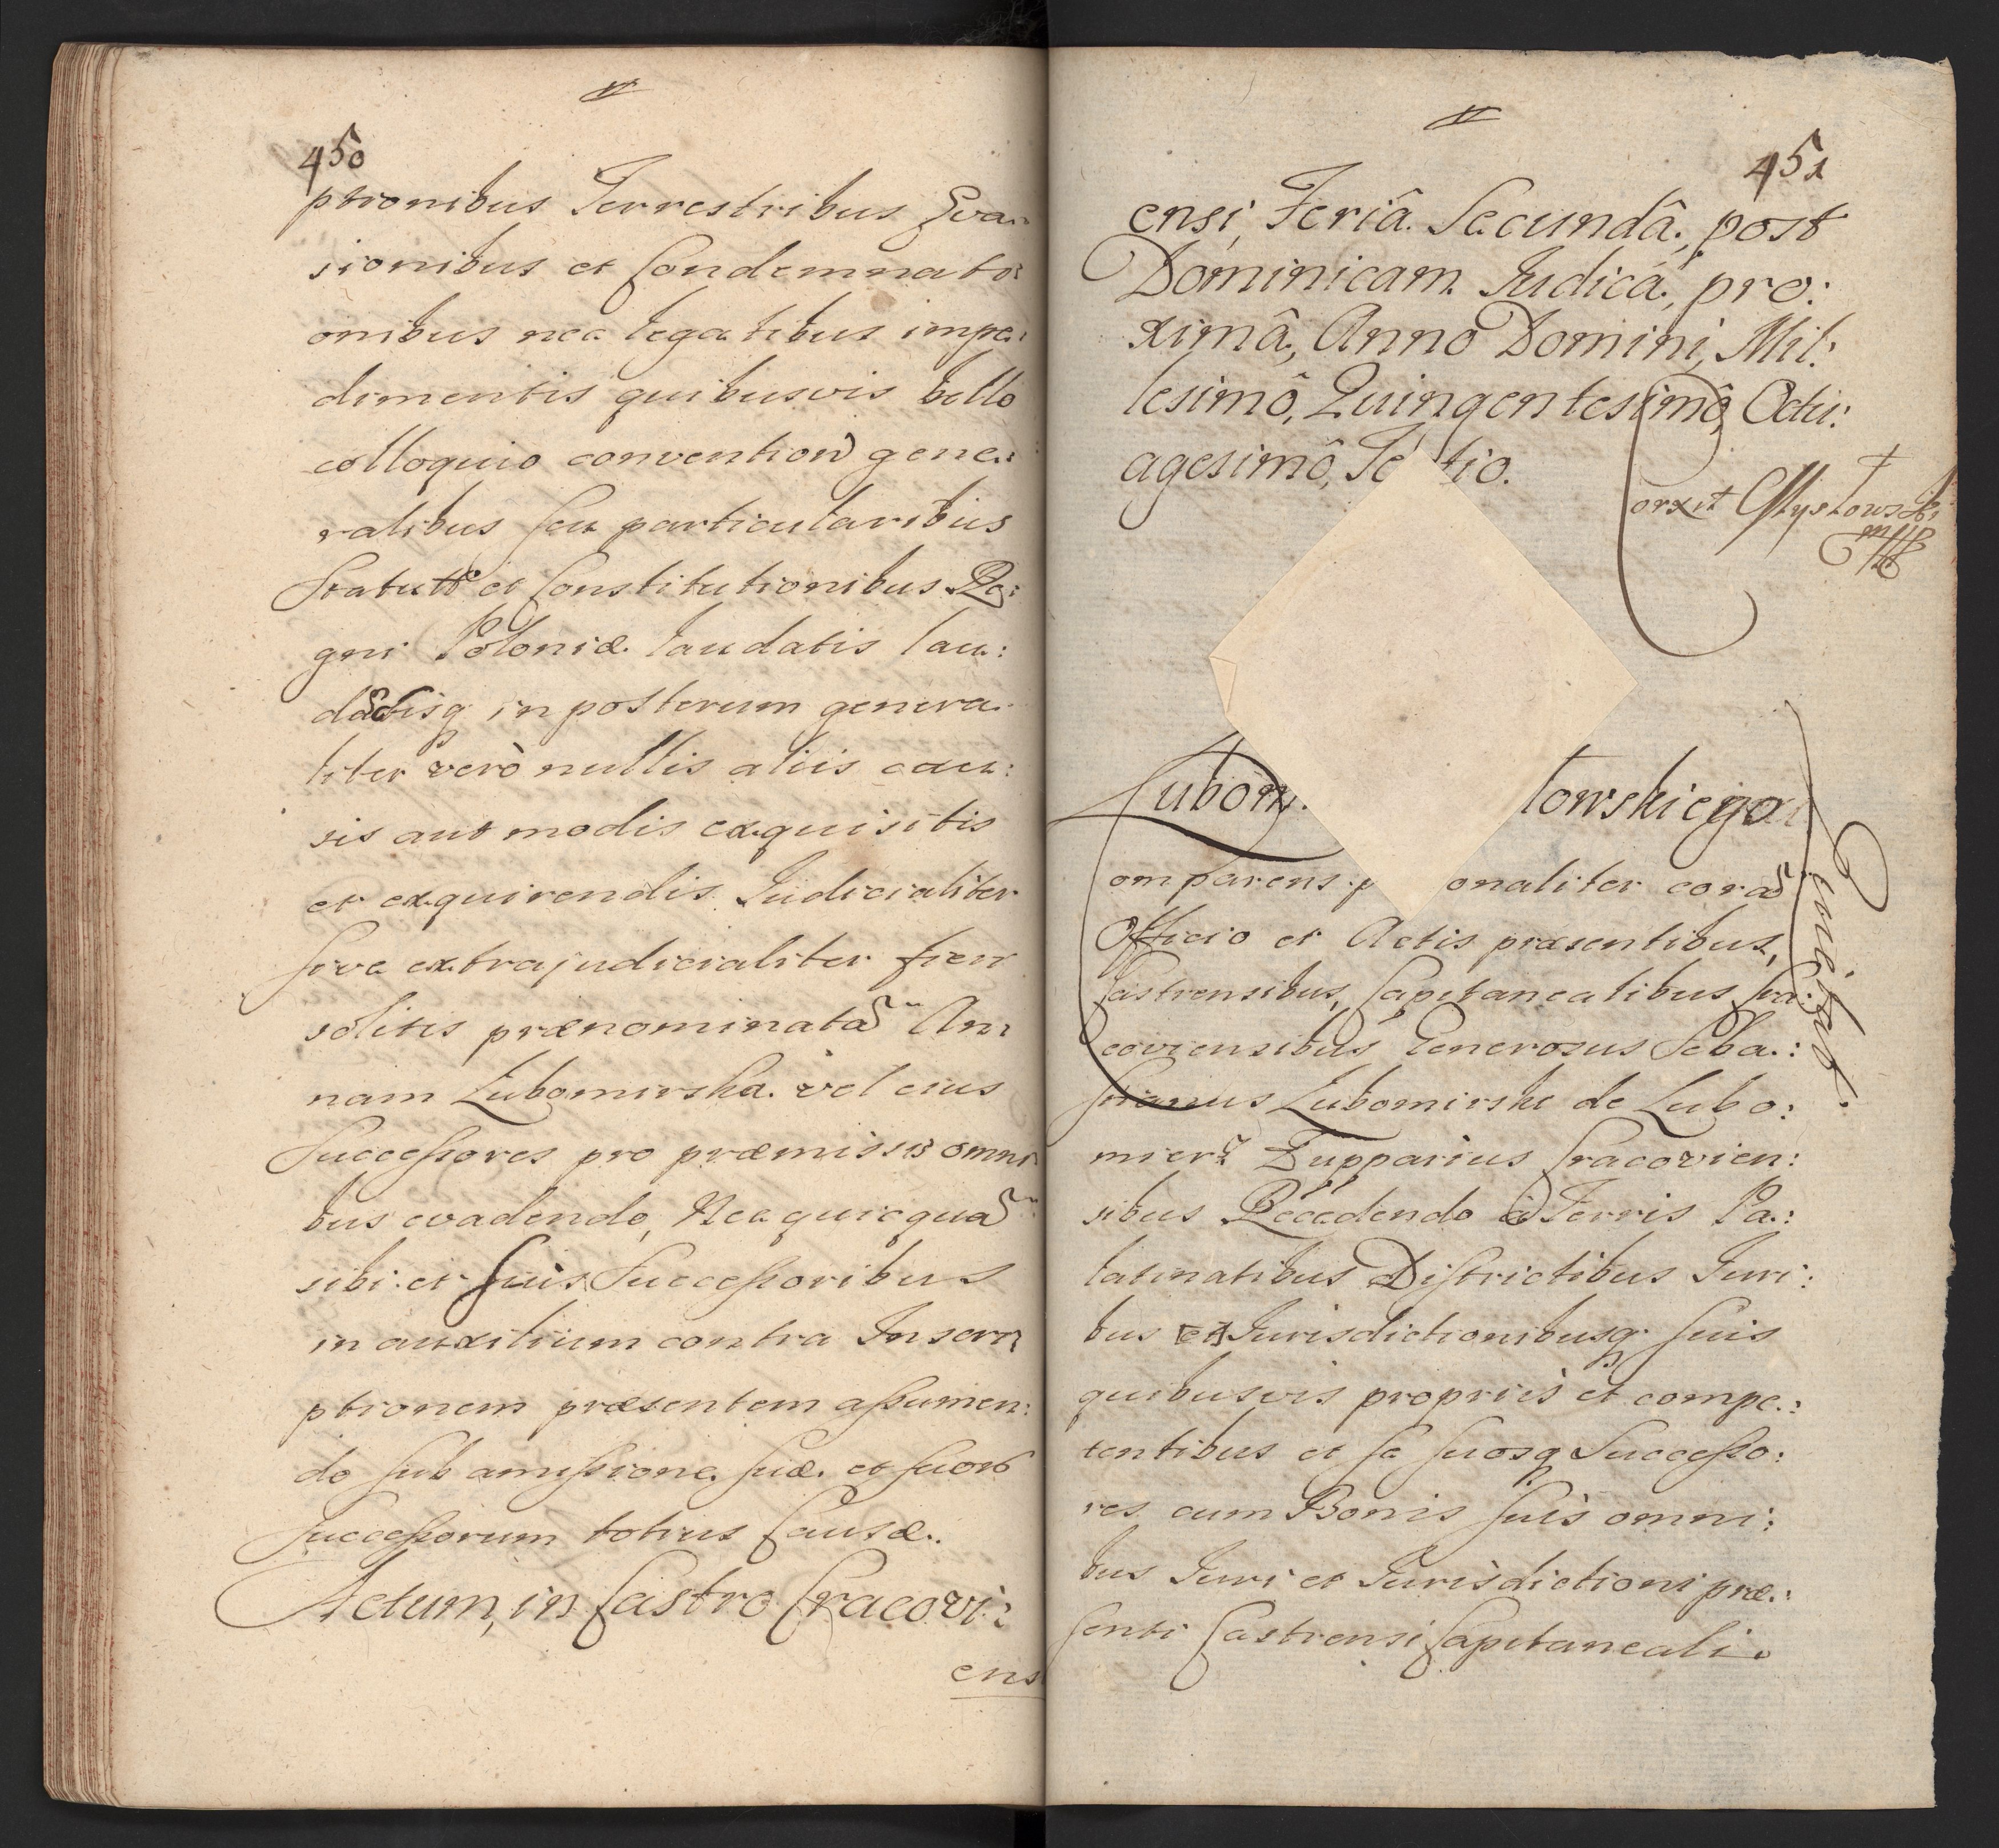 450
ptionibus Terrestribus Eva:
sionibus et Condemnato:
onibus nec legalibus impe:
dimentis quibusvis bello
colloquio convention gene:
ralibus seu particularibus
Statutt et Constitutionibus Re:
gni Poloniæ laudatis lau:
dadisq in posterum genera
liter verò nullis aliis cau:
sis aut modis exquisitis
et exquirendis Judicialiter
sive extrajudicialiter fieri
solitis prænominatã An:
nam Lubomirska vel eius
Successores pro præmissis omni
bus evadendo, Nec quicquã
sibi et suis Successoribus
in auxilium contra Inscri
ptionem præsentem assumen:
do sub amissione suæ et suor
Successorum totius Causæ.
Actum, in Castro Cracovi:
ensi
451
ensi, Feriâ Secundâ, post
Dominicam Judica, pro:
ximâ, Anno Domini, Mil:
lesimô, Quingentesimô, Octu:
agesimô, Te tio.
orxit Mystowski
mpp
Lubom towskiego
Quietat.
omparens p onaliter corã
Officio et Actis præsentibus,
Castrensibus, Capitanealibus Cra:
coviensibus Generosus Seba:
stianus Lubomirski de Lubo:
mierz Zupparius Cracovien:
sibus Recedendo à Terris Pa:
latinatibus Districtibus Juri:
bus et Jurisdictionibusq suis
quibusvis propriis et compe:
tentibus et se suosq Successo:
res cum Bonis suis omni:
bus Juri et Jurisdictioni præ:
senti Castrensi Capitaneali.